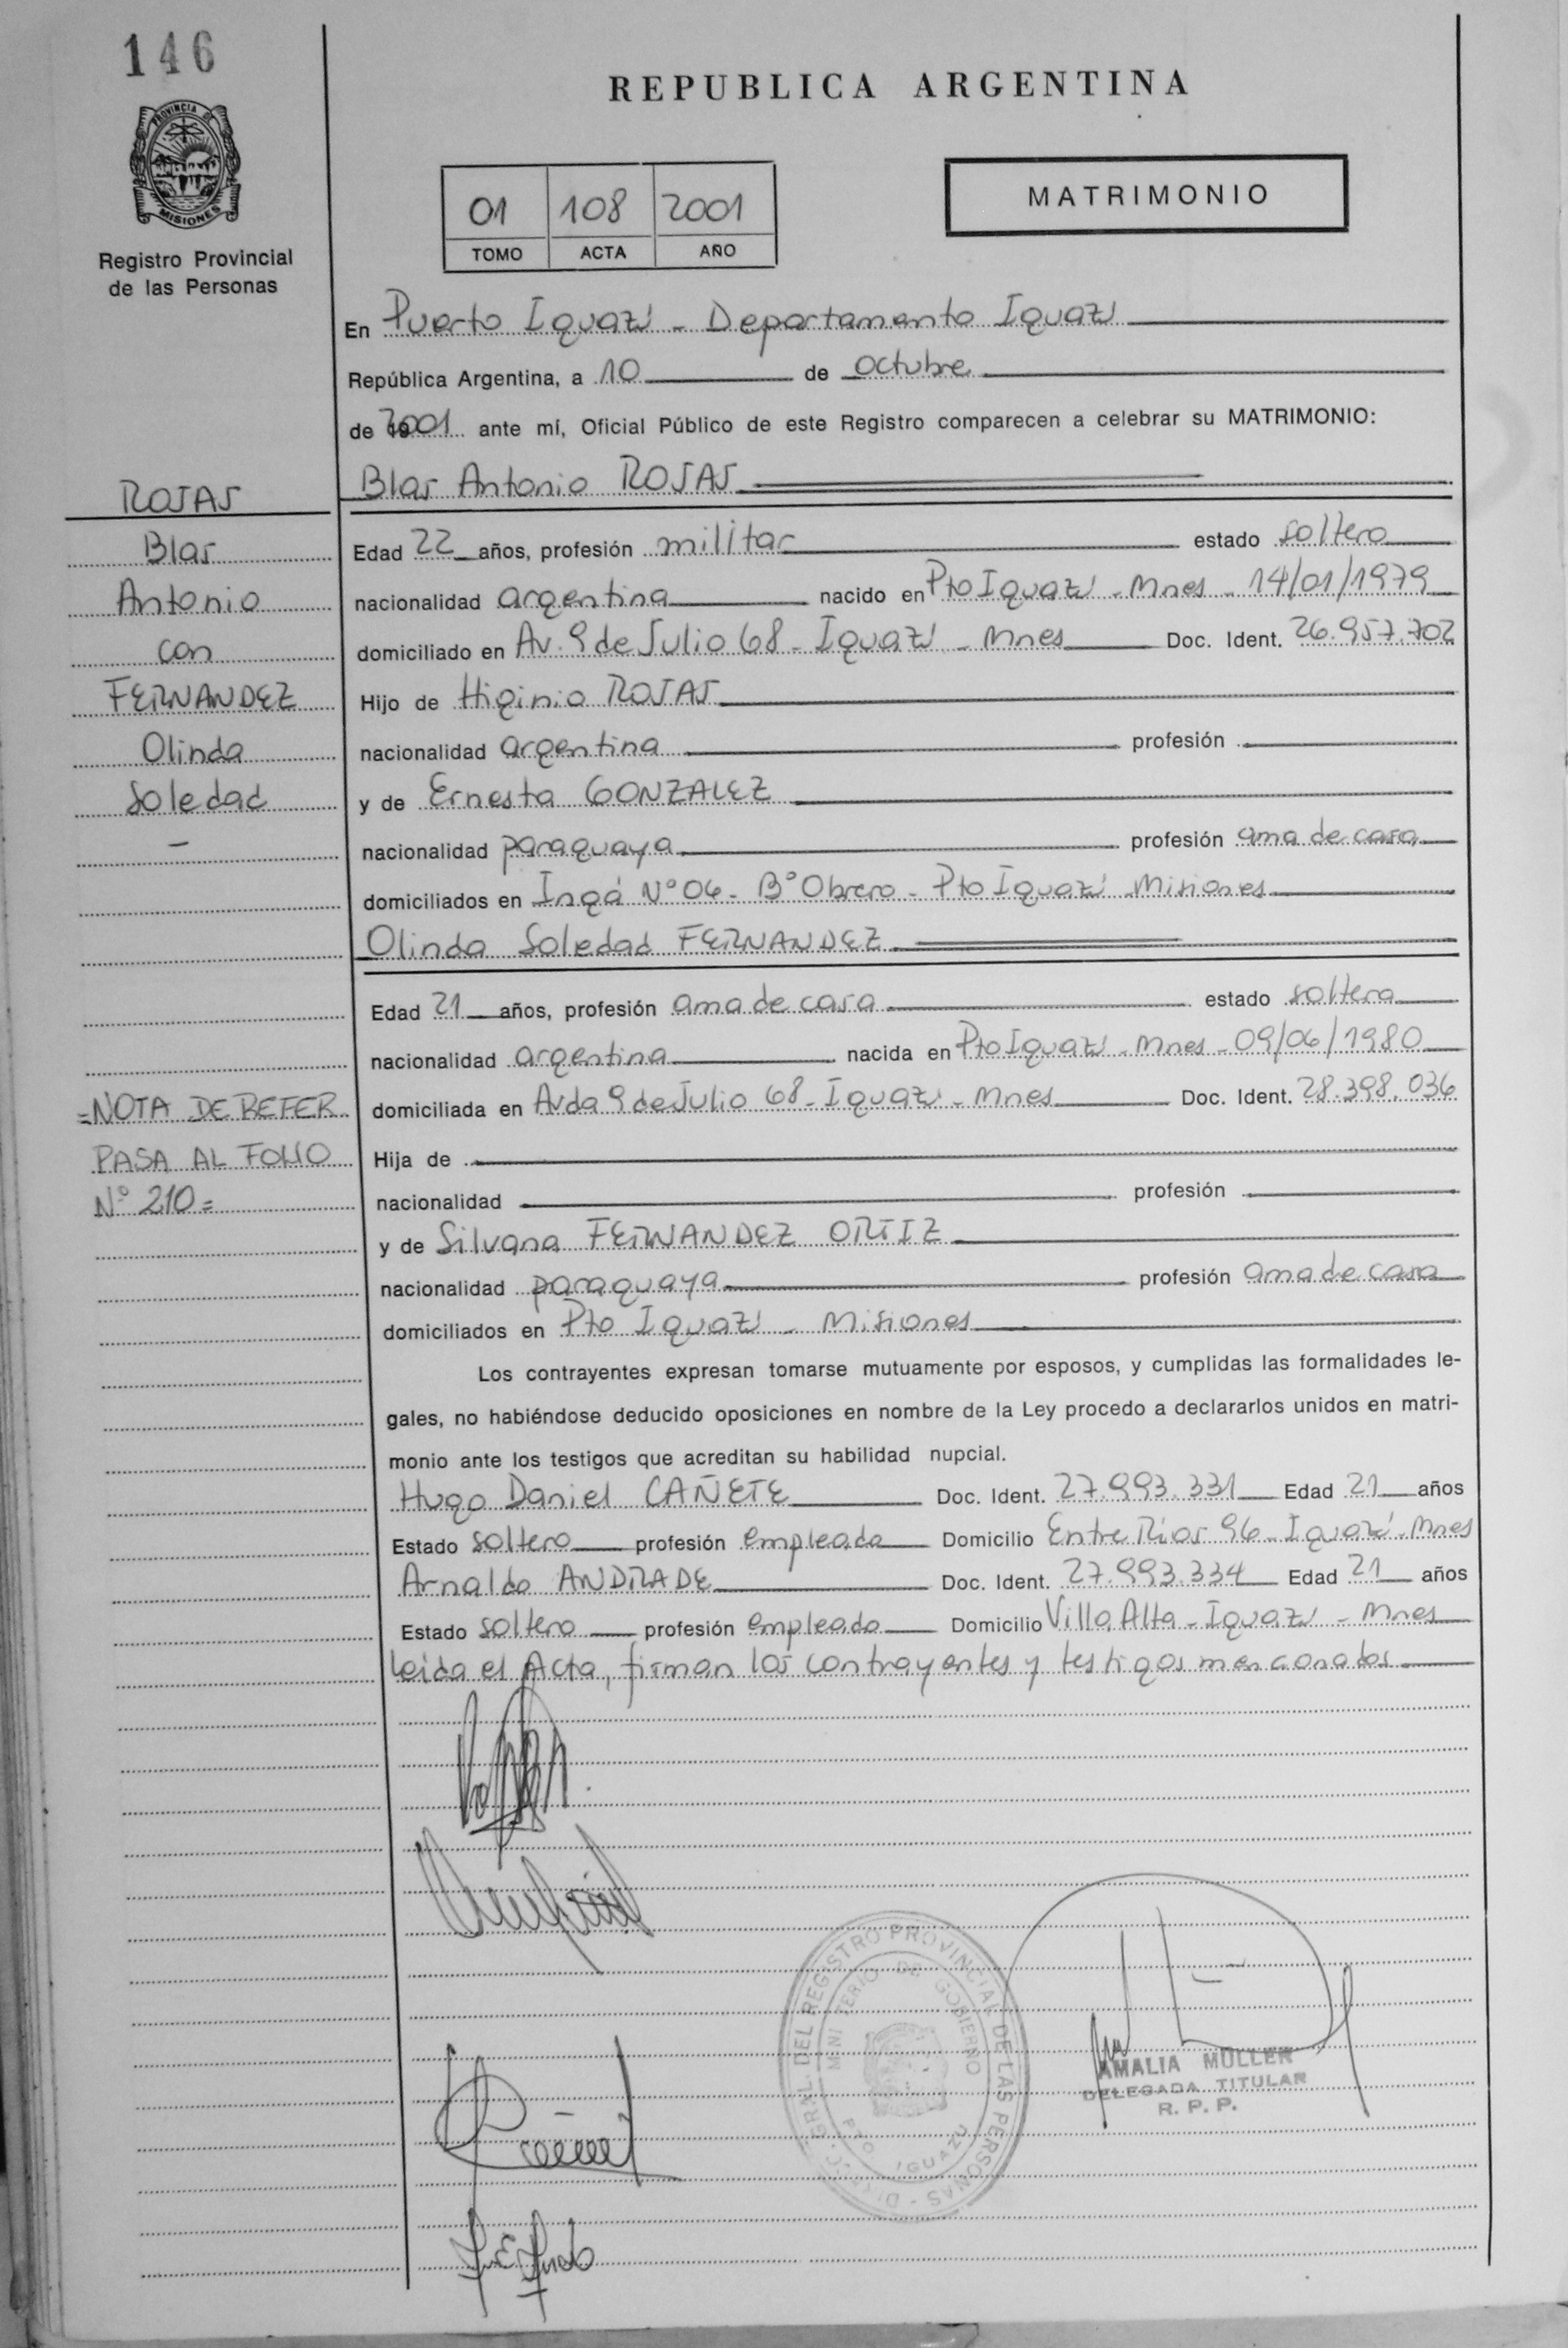 146
PROVINCIA DE
MISIONES
Registro Provincial
de las Personas
REPUBLICA ARGENTINA
01 108 2001
TOMO ACTA AÑO
MATRIMONIO
En Puerto Iguazú - Departamento Iguazú
República Argentina, a 10 de octubre
de 2001 ante mí, Oficial Público de este Registro comparecen a celebrar su MATRIMONIO:
Blas Antonio ROJAS
ROJAS
Blas
Antonio
con
FERNANDEZ
Olinda
Soledad
-
Edad 22 años, profesión militar estado soltero
nacionalidad argentina nacido en Pto Iguazú - Mnes - 14/01/1979
domiciliado en Av. 9 de Julio 68 - Iguazú - Mnes Doc. Ident. 26.957.702
Hijo de Higinio ROJAS
nacionalidad argentina profesión
y de Ernesta GONZALEZ
nacionalidad paraguaya profesión ama de casa
domiciliados en Ingá N° 06 - B° Obrero - Pto Iguazú - Misiones
Olinda Soledad FERNANDEZ
Edad 21 años, profesión ama de casa estado soltera
nacionalidad argentina nacida en Pto Iguazú - Mnes - 09/06/1980
domiciliada en Avda 9 de Julio 68 - Iguazú - Mnes Doc. Ident. 28.398.036
=NOTA DE REFER
PASA AL FOLIO
N° 210=
Hija de
nacionalidad profesión
y de Silvana FERNANDEZ ORTIZ
nacionalidad paraguaya profesión ama de casa
domiciliados en Pto Iguazú - Misiones
Los contrayentes expresan tomarse mutuamente por esposos, y cumplidas las formalidades le-
gales, no habiéndose deducido oposiciones en nombre de la Ley procedo a declararlos unidos en matri-
monio ante los testigos que acreditan su habilidad nupcial.
Hugo Daniel CAÑETE Doc. Ident. 27.993.331 Edad 21 años
Estado soltero profesión empleado Domicilio Entre Rios 96 - Iguazú - Mnes
Arnaldo ANDRADE Doc. Ident. 27.993.334 Edad 21 años
Estado soltero profesión empleado Domicilio Villa Alta - Iguazú - Mnes
Leida el Acta, firman los contrayentes y testigos mencionados
GRAL. DEL REGISTRO PROVINCIAL DE LAS PERSONAS
MINISTERIO DE GOBIERNO
PTO IGUAZU
AMALIA MULLER
DELEGADA TITULAR
R. P. P.